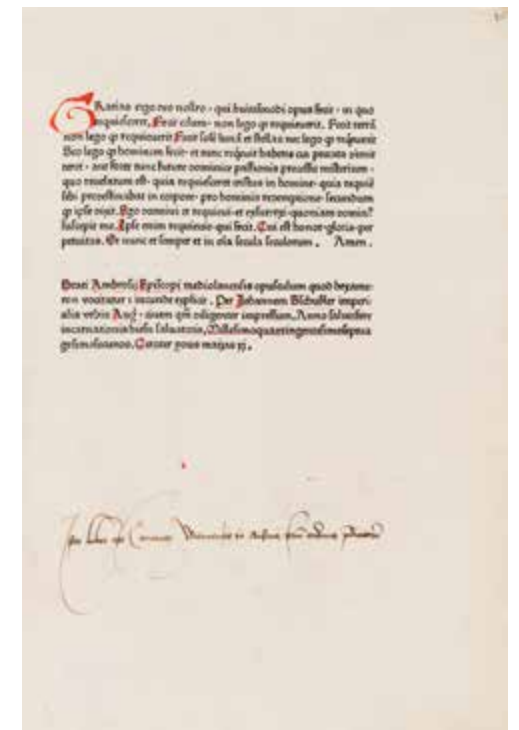 GRatias ergo deo nostro · qui huiusmodi opus fecit · in quo
requiesceret. Fecit celum · non lego ꝙ requieuerit. Fecit terrã
non lego ꝙ requieuerit Fecit solẽ lunã et stellas nec lego ꝙ reqͥuerit
Sed lego ꝙ hominem fecit · et tunc reqͥuit habens cui peccata dimit
teret · aut forte tunc future dominice passionis precessit misterium ·
quo reuelatum est · quia requiesceret cristus in homine · quia requiẽ
sibi predestinabat in corpore · pro hominis redemptione · secundum
ꝙ ipse dixit. Ego dormiui et requieui · et resurrexi · quoniam domin⁹
suscepit me. Ipse enim requieuit qui fecit. Cui est honor · gloria · per
petuitas. Et nunc et semper et in oĩa secula seculorum. Amen.
Beati Ambrosij Episcopi mediolanensis opusculum quod hexame-
ron vocitatur · iocunde explicit. Per Iohannem Schüssler imperi-
alis vrbis Aug · ciuem qm̃ diligenter impressum. Anno salutifere
incarnationis
Millesimoquatringentesimoseptua
gesimosecundo.
maijas
Iste liber est
in
ordinis